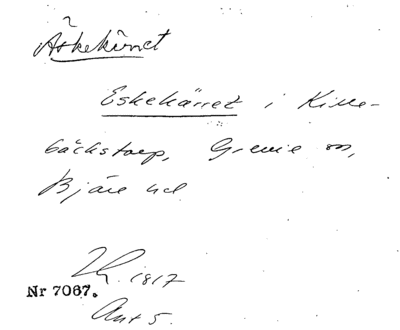 Äskekärret
Eskekärret i Kille-
bäckstorp, Grevie sn,
Bjäre hd
1817
Nr 7067.
Ant 5.